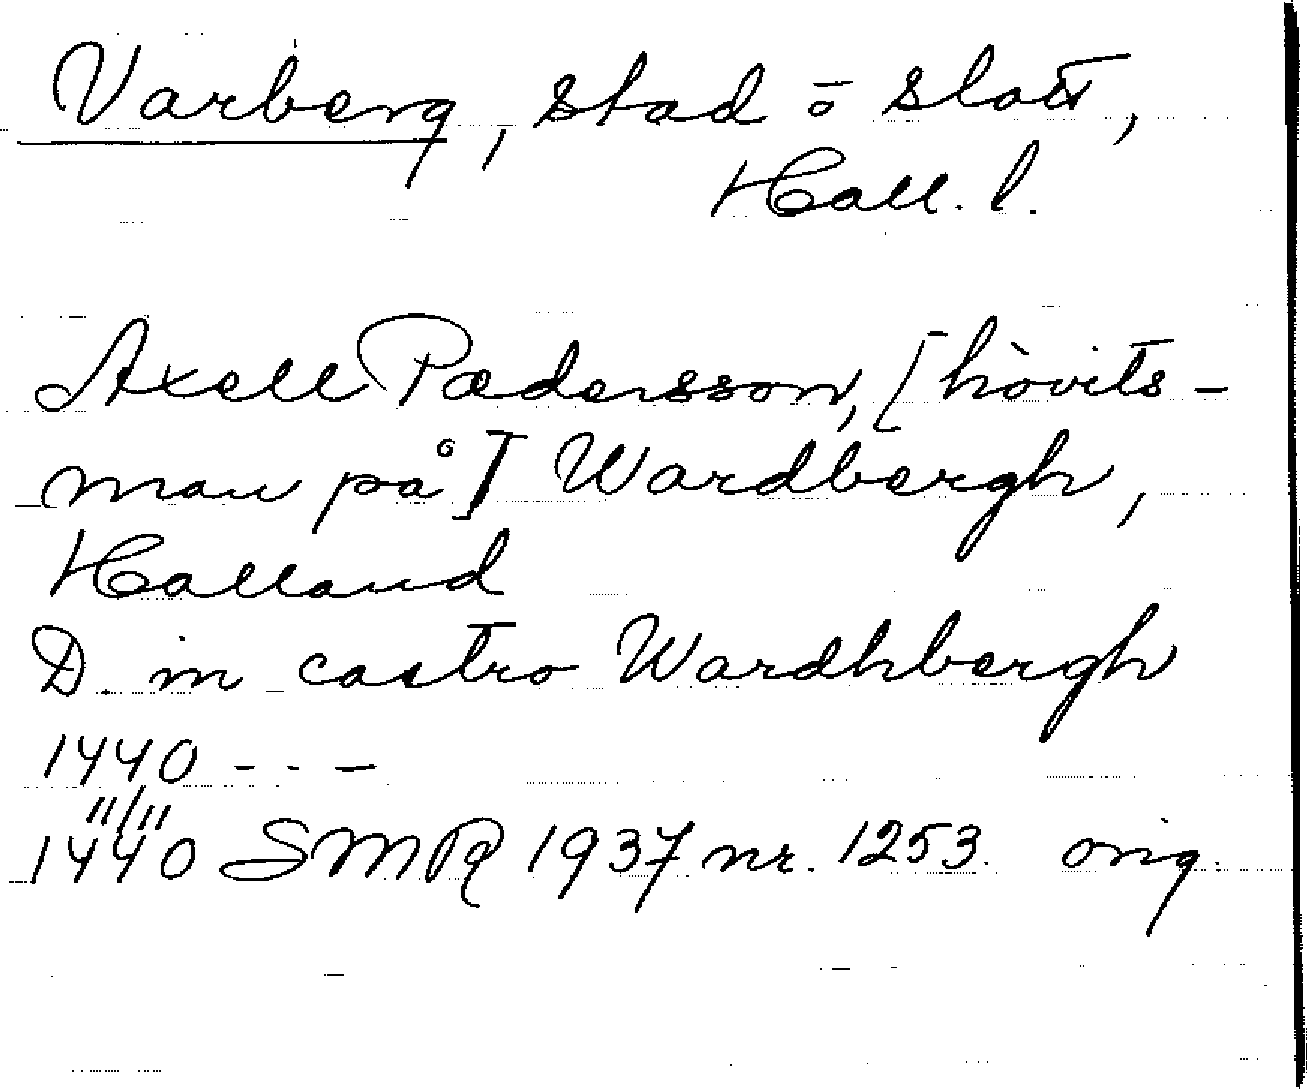 Varberg, stad o slott,
Hall. l.
Axell Pædersson, [hövits-
man på] Wardbergh,
Halland
D. in castro Wardhbergh
1440 - - -
11/11
1440 SMR 1937 nr. 1253. orig.